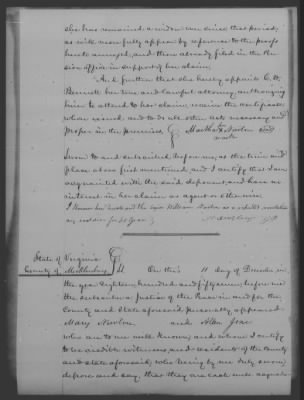 she has remained a widow ever since that period,
as will more fully appear by reference to the proofs
hereto annexed, and those already filed in the Pen
sion office in support of her claim.
And further that she hereby appoints C. W.
Bennett her true and lawful attorney, authorizing
him to attend to her claim, receive the certificate
when issued and to do all other acts necessary and
proper in the premises.
Martha Newton
mark
Sworn to and subscribed before me, at the time and
place above first mentioned, and I certify that I am
acquainted with the said deponent, and have no
interest in her claim as agent or otherwise
State of Virginia
County of Mecklenburg
On this 11 day of December in
the year eighteen hundred and fifty before me
the subscriber a Justice of the Peace in and for the
County and State aforesaid personally appeared
Mary and Allen
who are to me well known, and whom I certify
to be credible witnesses and residents of the county
and state aforesaid, who being by me duly sworn,
depose and say, that they are each well acquain